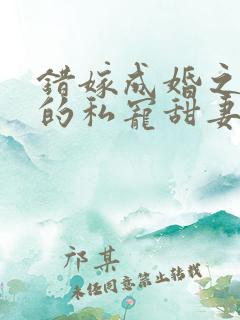 错嫁成婚之
的私宠甜妻
祁某
未经同意禁止转载